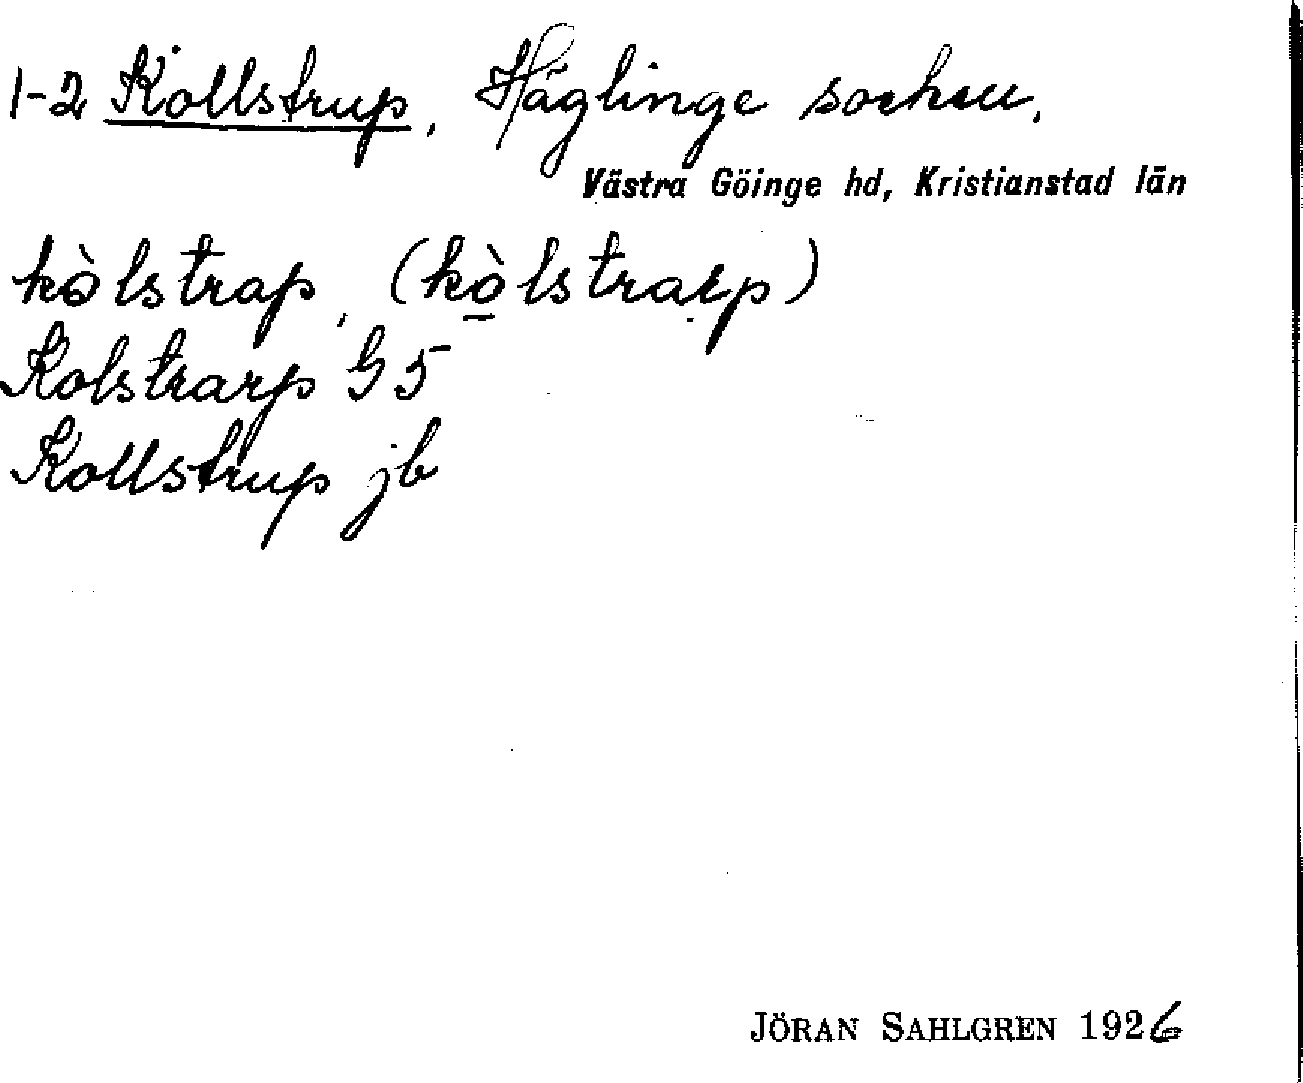 1-2 Kollstrup, Häglinge socken,
Västra Göinge hd, Kristianstad län
kòlstrap, (kò̱lstrarp)
Kolstrarp G5
Kollstrup jb
JÖRAN SAHLGREN 1926